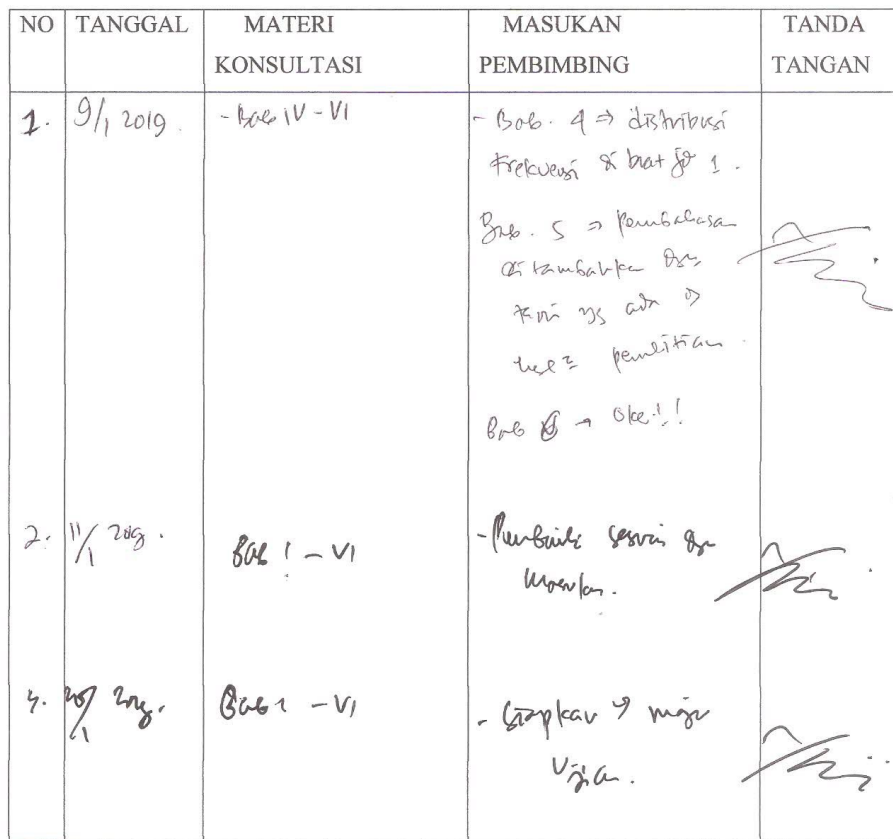 NO TANGGAL MATERI KONSULTASI MASUKAN PEMBIMBING TANDA TANGAN
1. 9/1 2019 - Bab IV - VI - Bab. 4 ⇒ distribusi
frekuensi di buat jd 1.
Bab. 5 ⇒ Pembahasan
di tambahkan dgn
teori yg ada
penelitian
Bab → Oke!!
2. 11/1 2019. Bab I - VI - Perbaiki sesuai dgn
Masukan.
Bab 1 - VI - Siapkan maju
Ujian.